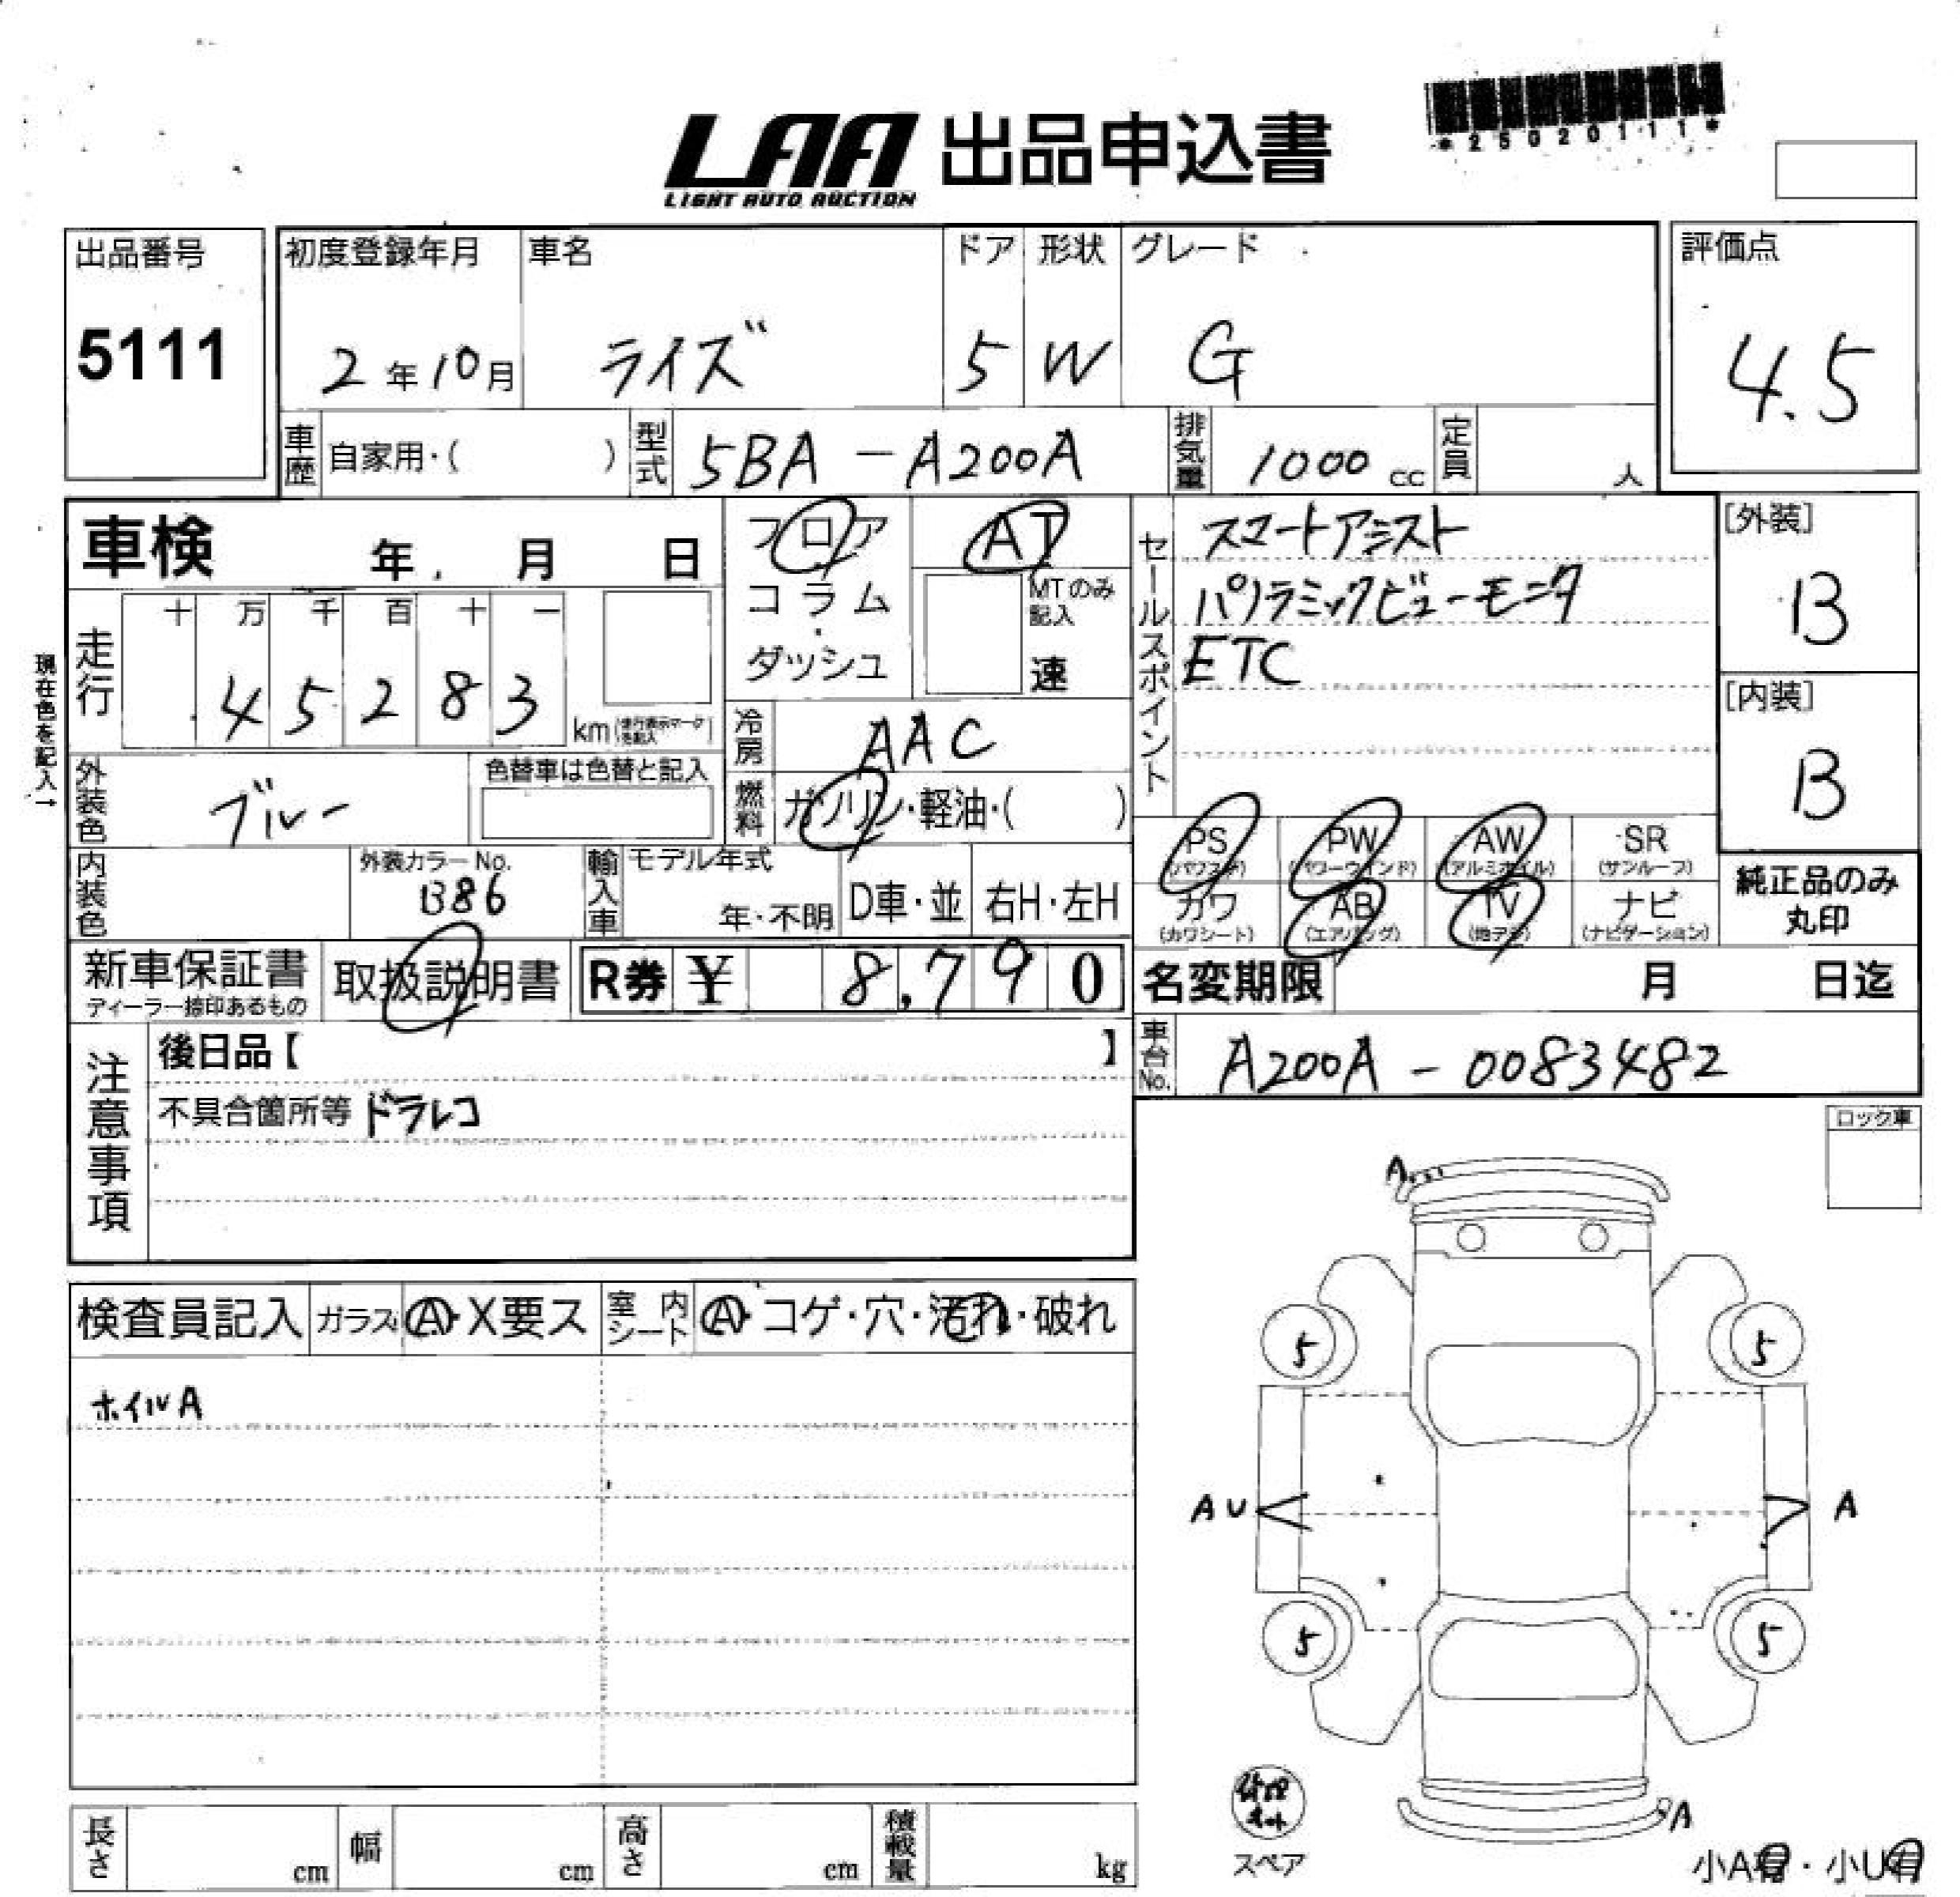 LAA 出品申込書
LIGHT AUTO AUCTION
*25020111*
出品番号
5111
初度登録年月
2年10月
車名
ライズ
ドア
5
形状
W
グレード
G
評価点
4.5
車歴 自家用・( )
型式 5BA-A200A
排気量 1000cc
定員 人
車検 年 月 日
現在色を記入→
走行 十 万 千 百 十 一
45283 km
フロア
コラム
・
ダッシュ
AT
MTのみ
記入
速
セールスポイント
スマートアシスト
パノラミックビューモニタ
ETC
[外装]
B
[内装]
B
冷房 AAC
外装色 ブルー
色替車は色替と記入
燃料 ガソリン・軽油・( )
内装色
外装カラーNo.
B86
輸入車 モデル年式
年・不明
D車・並
右H・左H
PS
(パワステ)
PW
(パワーウインド)
AW
(アルミホイル)
SR
(サンルーフ)
カワ
(カワシート)
AB
(エアバッグ)
TV
(地デジ)
ナビ
(ナビゲーション)
純正品のみ
丸印
新車保証書
ディーラー捺印あるもの
取扱説明書
R券 ¥ 8,790
名変期限 月 日迄
車台No. A200A-0083482
注意事項
後日品【 】
不具合箇所等 ドラレコ
ロック車
検査員記入 ガラス A・X要ス 室内シート A・コゲ・穴・汚れ・破れ
ホイルA
A
5 5
AU A
5 5
A
スペア
長さ cm
幅 cm
高さ cm
積載量 kg
小A有・小U有